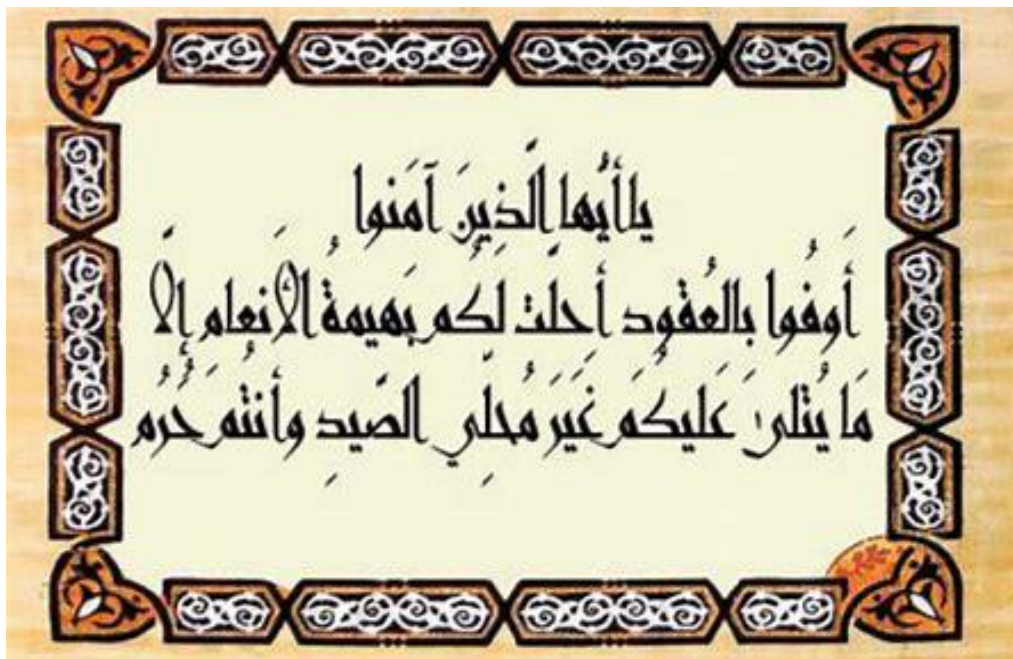 ياأيها الَّذِينَ آمَنوا
أَوفُوا بالعُقُود أحلَّت لَكُم بَهيمةُ الأَنعام إلَّا
مَا يُتلىٰ عَليكُم غَيَر مُحلِّي الصَّيدِ وأنتُم حُرُم